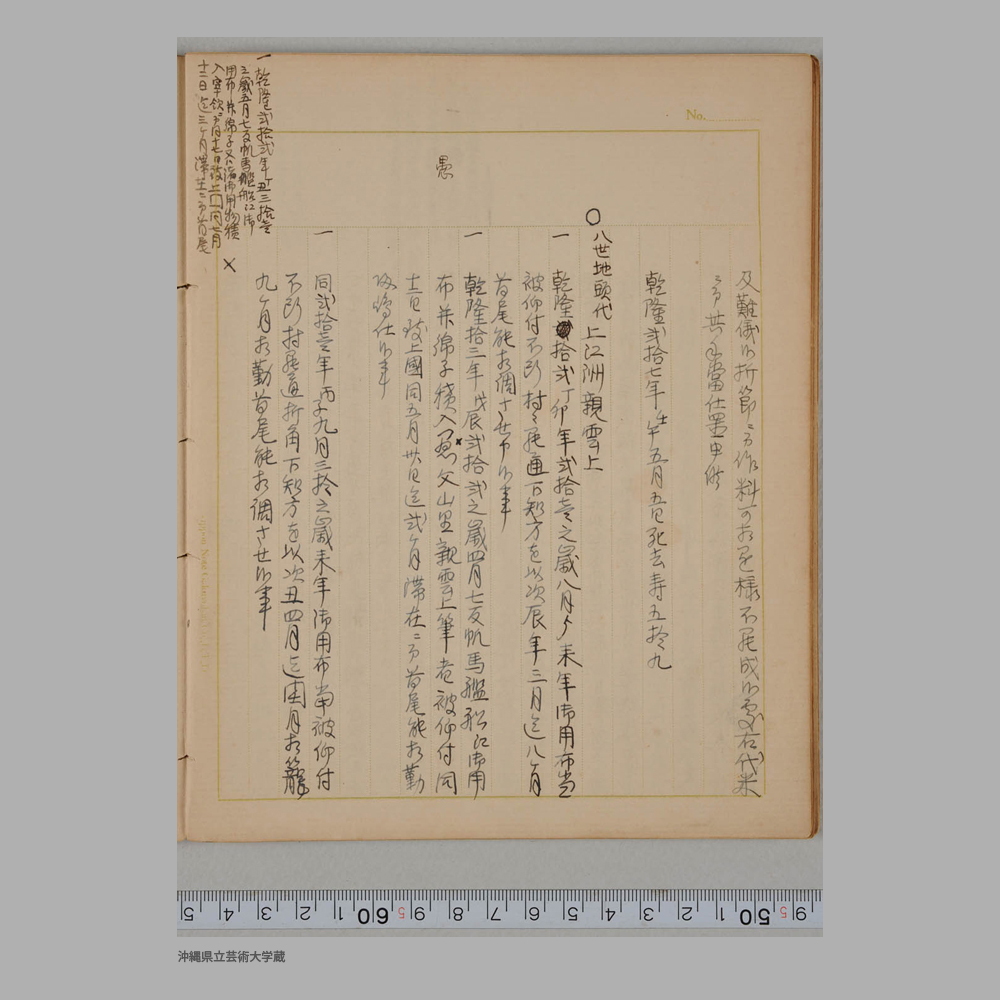 No.
及難儀候折節ニ而作料可相達様不罷成候処右代米
ニ而共手当仕置申候
乾隆弐拾七年壬午五月五日死去寿五拾九
○八世地頭代上江洲親雲上
一乾隆拾弐丁卯年弐拾壱之歳八月ゟ来年御用布当
被仰付不断村々罷通下知方を以次辰年三月迄八ヶ月
首尾能相調させ申候事
一乾隆拾三年戊辰弐拾弐之歳四月七反帆馬艦船江御用
布并綿子積入×愚父山里親雲上筆者被仰付同
十三日致上国同五月廿日迄弐ヶ月滞在ニ而首尾能相勤
帰帰仕候事
愚
一同弐拾壱年丙子九月三拾之歳来年御用布当被仰付
不断村罷通折角下知方を以次丑四月迄閏月相籠
九ヶ月相勤首尾能相調させ候事
×
一乾隆弐拾弐年丁丑三拾壱
之歳五月七反帆馬艦船江御
用布并綿子又ハ諸御用物積
入宰領ニ而同十七日致上国同七月
十二日迄三ヶ月滞在ニ而首尾
沖縄県立芸術大学蔵
5 4 3 2 1 60 5 9 8 7 6 5 4 3 2 1 50 5 9